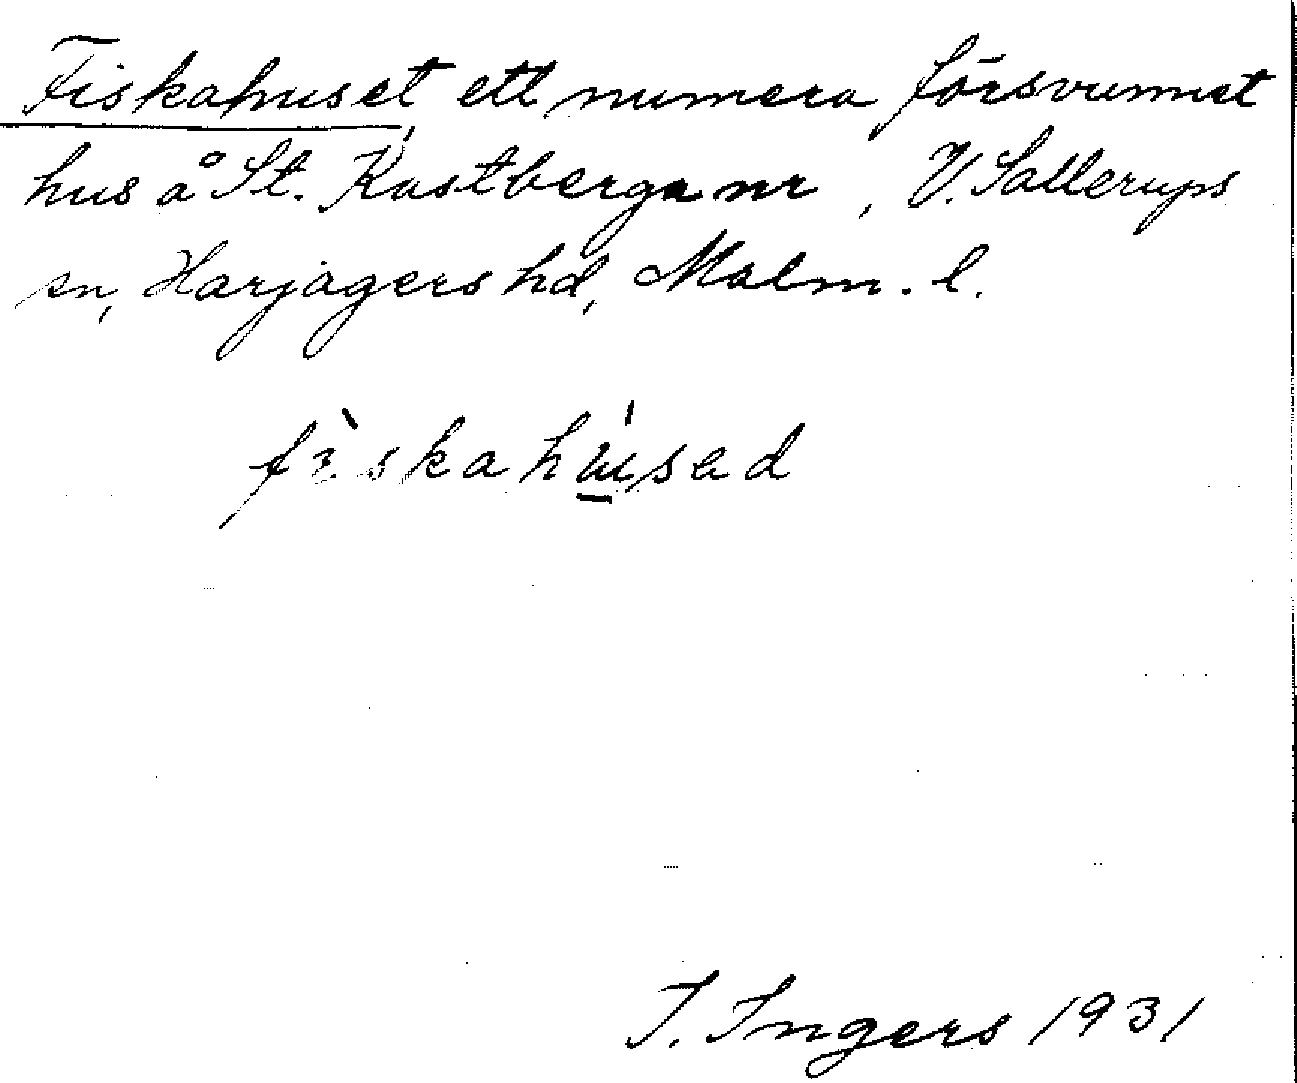 Fiskahuset ett numera försvunnet
hus å St. Kastberga nr , V. Sallerups
sn, Harjagers hd, Malm. l.
fìskahu̲sad
I. Ingers 1931